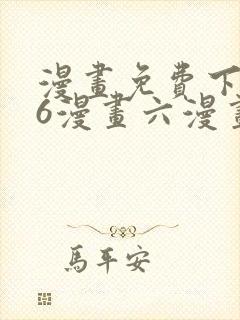 漫畫免費下
6漫畫六漫畫
馬平安